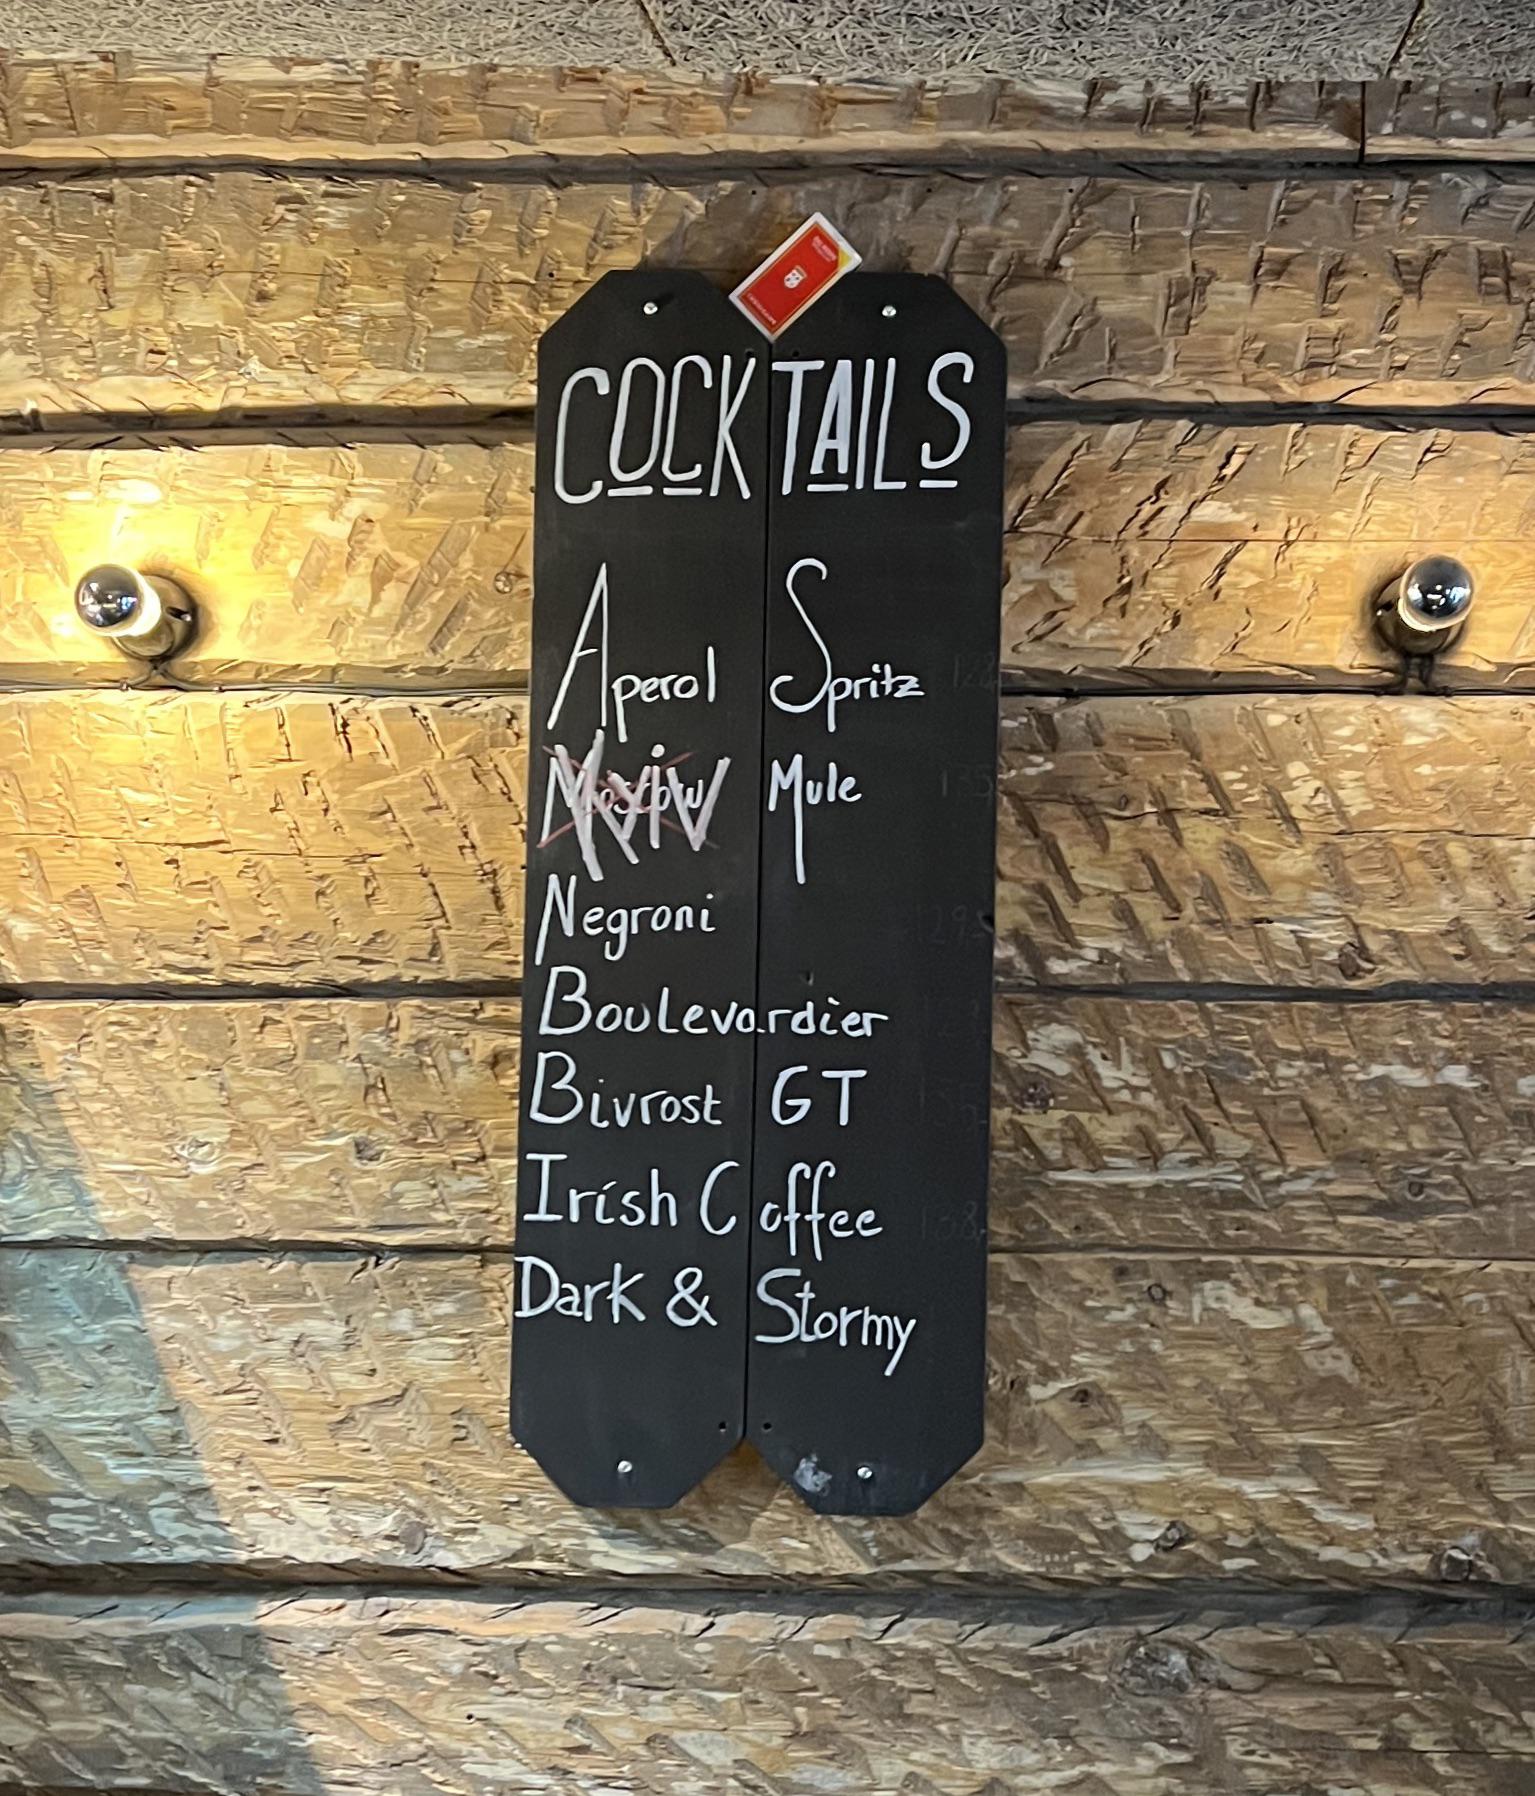 COCKTAILS
Aperol Spritz
Moscow Kyiv Mule 135
Negroni 129
Boulevardier
Bivrost GT
Irish Coffee 138
Dark & Stormy